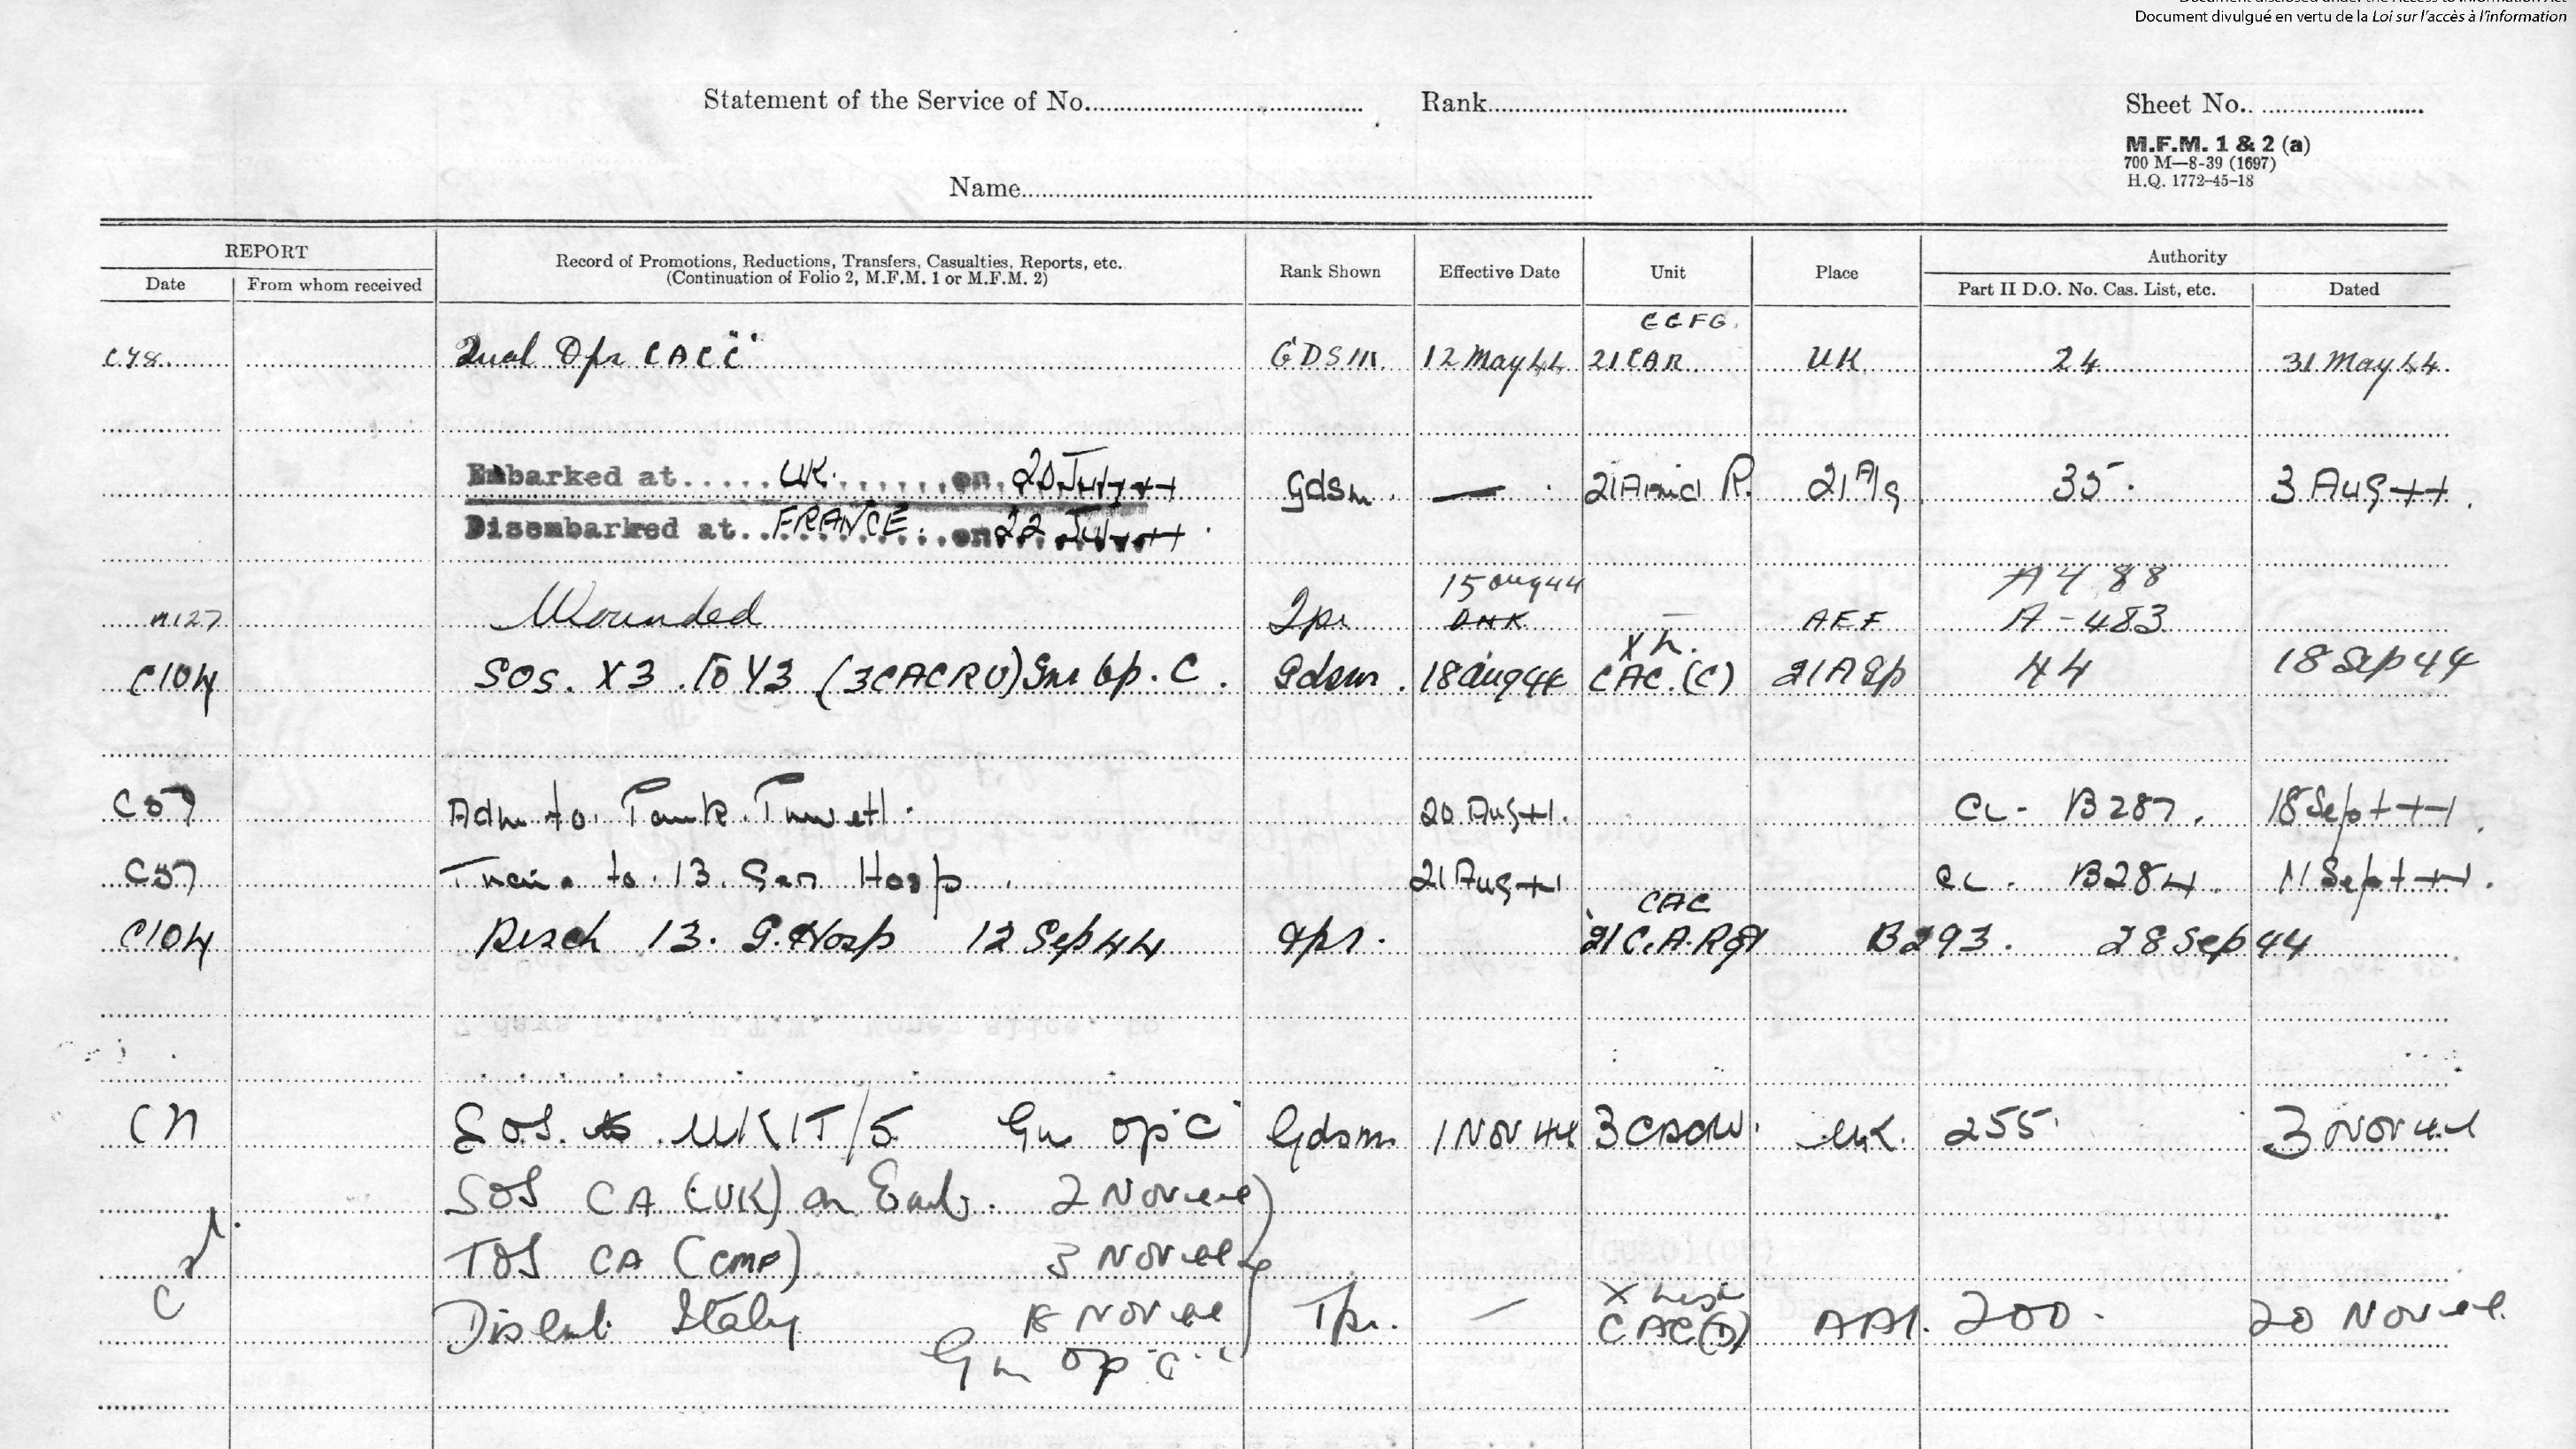 Document divulgué en vertu de la Loi sur l'accès à l'information
Statement of the Service of No. Rank Sheet No.
M.F.M. 1 & 2 (a)
700 M—8-39 (1697)
H.Q. 1772-45-18
Name
REPORT Record of Promotions, Reductions, Transfers, Casualties, Reports, etc. Rank Shown Effective Date Unit Place Authority
(Continuation of Folio 2, M.F.M. 1 or M.F.M. 2)
Date From whom received Part II D.O. No. Cas. List, etc. Dated
Qual Opr CAC "C" GDSM. 12 May 44 21 CAR UK 24 31 May 44.
Embarked at UK. on 20 July 44 Gdsm. — 21 Armd R. 21 A/g 35. 3 Aug 44.
Disembarked at FRANCE. on 22 July 44
15 Aug 44 A 488
M127 Wounded Tpr — AEF A-483
X h.
C104 SOS. X3 to Y3 (3CACRU) Gnr Op. C. Gdsm. 18 Aug 44 CAC.(C) 21 A Gp 44 18 Sep 44
C57 Adm to 20 Aug 44. CL- B287. 18 Sept 44.
C57 Trans to 13 Gen Hosp. 21 Aug 44 CL- B284. 11 Sept 44.
CAC
C104 Disch 13. G. Hosp 12 Sep 44 Tpr. 21 C.A. Rgt B293. 28 Sep 44
SOS to UK IT/5 Gn Op "C" Gdsm 1 Nov 44 UK. 255. 3 Nov 44
SOS CA (UK) on Emb. 2 Nov 44
TOS CA (CMF) 3 Nov 44
Disemb. Italy 18 Nov 44 Tpr. — CAC(D) AAI. 200. 20 Nov 44.
Gn Op "C"